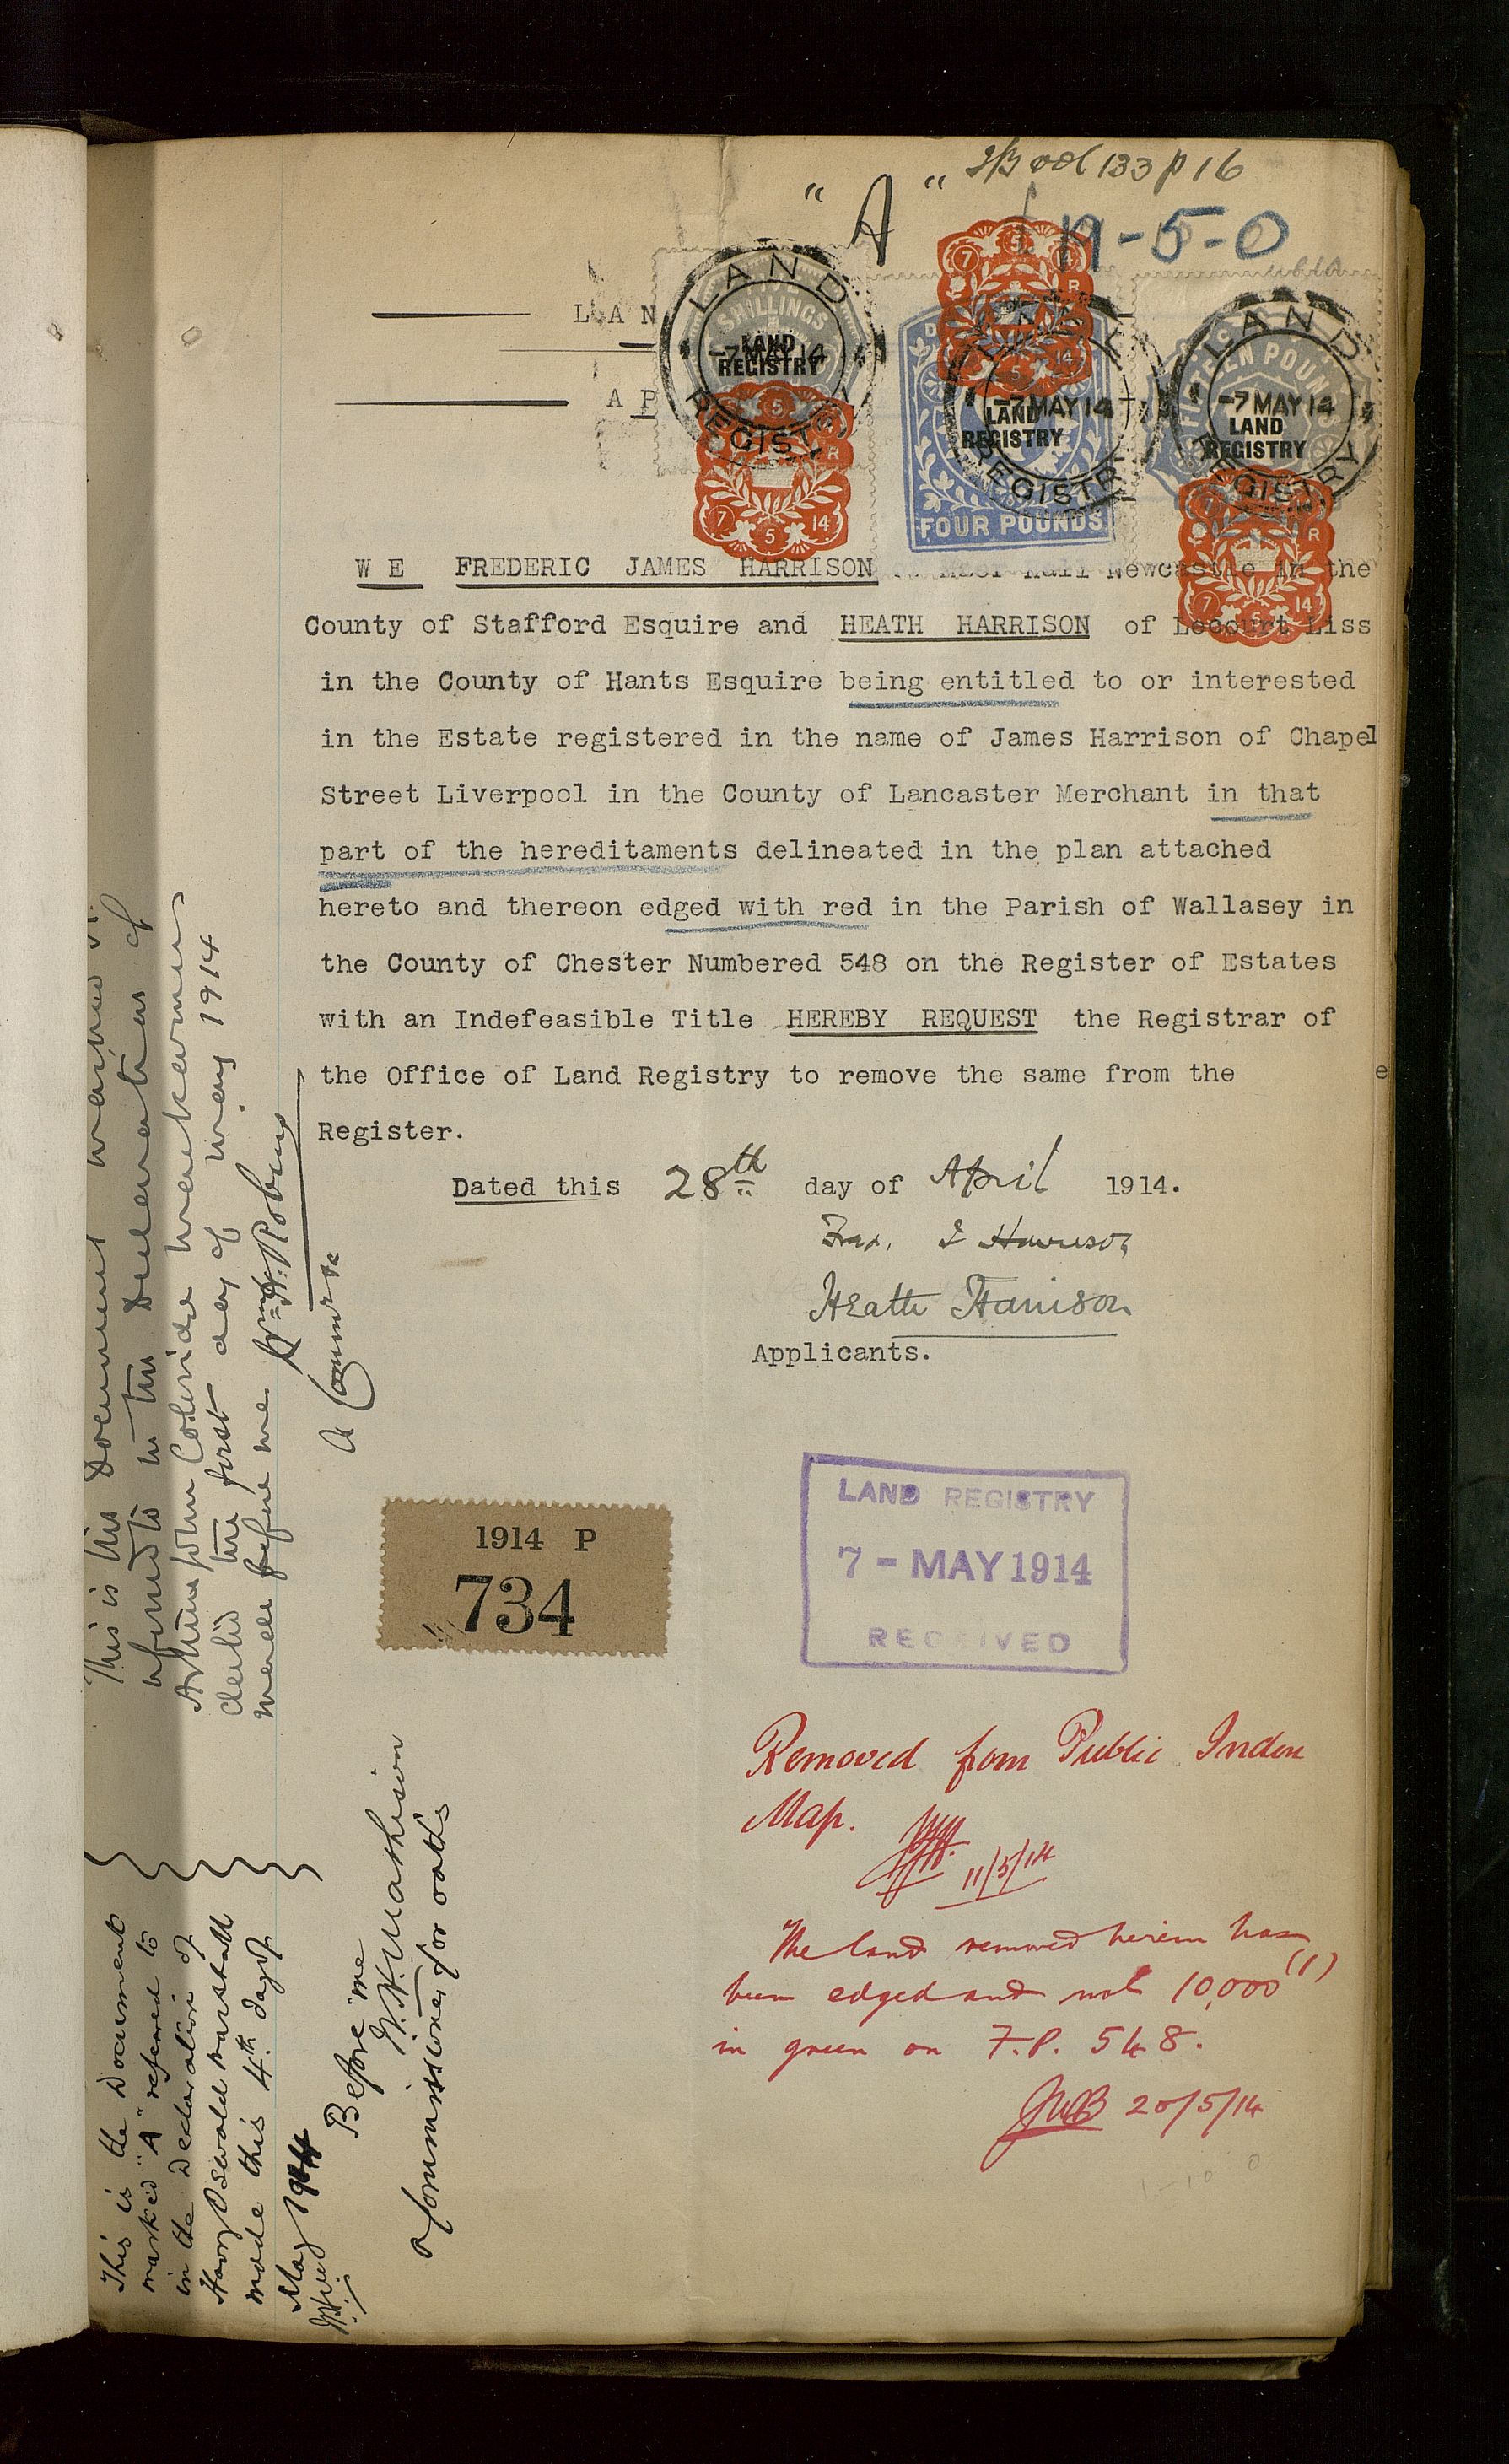 "A"
133 p 16
19-5-0
LAN
AP
SHILLINGS
LAND REGISTRY
-7 MAY 14
LAND REGISTRY
5
R
7 5 14
7 5 4
R
14
5
LAND REGISTRY
-7 MAY 14
LAND REGISTRY
FOUR POUNDS
FIFTEEN POUNDS
LAND REGISTRY
-7 MAY 14
LAND REGISTRY
R
7 5 14
WE FREDERIC JAMES HARRISON Hall Newcastle in the
County of Stafford Esquire and HEATH HARRISON of Lecourt Liss
in the County of Hants Esquire being entitled to or interested
in the Estate registered in the name of James Harrison of Chapel
Street Liverpool in the County of Lancaster Merchant in that
part of the hereditaments delineated in the plan attached
hereto and thereon edged with red in the Parish of Wallasey in
the County of Chester Numbered 548 on the Register of Estates
with an Indefeasible Title HEREBY REQUEST the Registrar of
the Office of Land Registry to remove the same from the
e
Register.
Dated this 28th day of April 1914.
Fred. J Harrison
Heath Harrison
Applicants.
1914 P
734
LAND REGISTRY
7 - MAY 1914
RECEIVED
Removed from Public Index
Map.
11/5/14
The land removed herein has
been edged and not 10,000 (1)
in green on F.P. 548.
JWB 20/5/14
1-10 0
This is the Document marked
referred to in the Declaration of
Arthur John Coleridge
the first day of May 1914
before me Wm H. Robins
A Commr &c
This is the Document
marked "A" referred to
in the Declaration of
Harry Oswald Marshall
made this 4th day of
May 1914
Before me
Commissioner for oaths